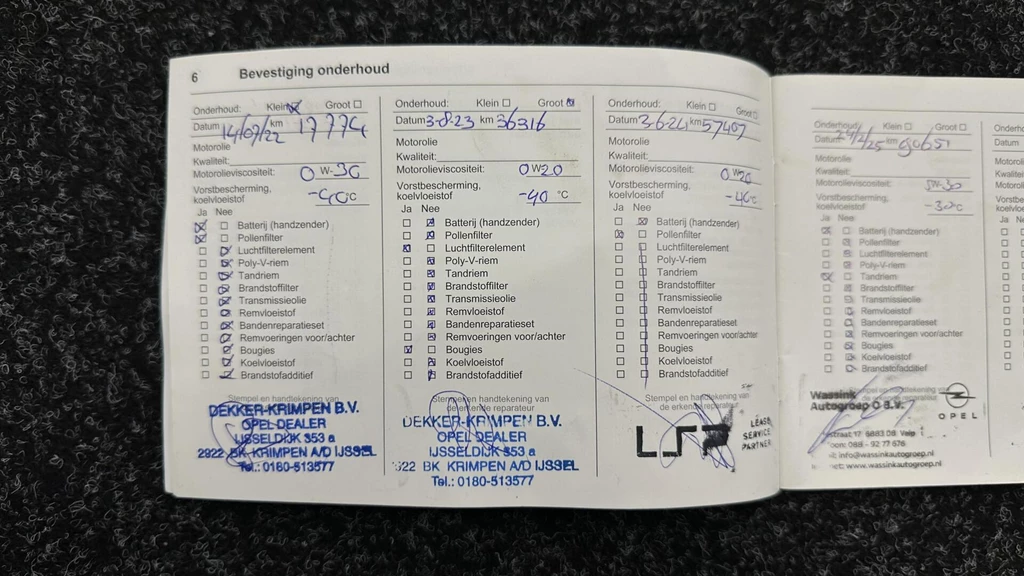 6 Bevestiging onderhoud
Onderhoud: Klein Groot
Datum 14/07/22 km 17774
Motorolie
Kwaliteit:
Motorolieviscositeit: 0 W-30
Vorstbescherming,
koelvloeistof -40°C
Ja Nee
Batterij (handzender)
Pollenfilter
Luchtfilterelement
Poly-V-riem
Tandriem
Brandstoffilter
Transmissieolie
Remvloeistof
Bandenreparatieset
Remvoeringen voor/achter
Bougies
Koelvloeistof
Brandstofadditief
Stempel en handtekening van
DEKKER-KRIMPEN B.V.
OPEL-DEALER
IJSSELDIJK 353 a
2922 BK KRIMPEN A/D IJSSEL
Tel.: 0180-513577
Onderhoud: Klein Groot
Datum 3-8-23 km 36316
Motorolie
Kwaliteit:
Motorolieviscositeit: 0W20
Vorstbescherming,
koelvloeistof -40 °C
Ja Nee
Batterij (handzender)
Pollenfilter
Luchtfilterelement
Poly-V-riem
Tandriem
Brandstoffilter
Transmissieolie
Remvloeistof
Bandenreparatieset
Remvoeringen voor/achter
Bougies
Koelvloeistof
Brandstofadditief
Stempel en handtekening van
de erkende reparateur
DEKKER-KRIMPEN B.V.
OPEL-DEALER
IJSSELDIJK 353 a
2922 BK KRIMPEN A/D IJSSEL
Tel.: 0180-513577
Onderhoud: Klein Groot
Datum 3-6-24 km 57407
Motorolie
Kwaliteit:
Motorolieviscositeit: 0W20
Vorstbescherming,
koelvloeistof -40°C
Ja Nee
Batterij (handzender)
Pollenfilter
Luchtfilterelement
Poly-V-riem
Tandriem
Brandstoffilter
Transmissieolie
Remvloeistof
Bandenreparatieset
Remvoeringen voor/achter
Bougies
Koelvloeistof
Brandstofadditief
Stempel en handtekening van
de erkende reparateur
LSP LEASE
SERVICE
PARTNER
Onderhoud: Klein Groot
Datum km
Motorolie
Kwaliteit:
Motorolieviscositeit: 5W-30
Vorstbescherming,
koelvloeistof -30°C
Ja Nee
Batterij (handzender)
Pollenfilter
Luchtfilterelement
Poly-V-riem
Tandriem
Brandstoffilter
Transmissieolie
Remvloeistof
Bandenreparatieset
Remvoeringen voor/achter
Bougies
Koelvloeistof
Brandstofadditief
Stempel en handtekening van
Wassink
Autogroep O B.V.
OPEL
straat 17 6883 DB Velp
info@wassinkautogroep.nl
www.wassinkautogroep.nl
Onderh
Datum
Motoroli
Kwalitei
Motorol
Vorstbe
koelvloe
Ja